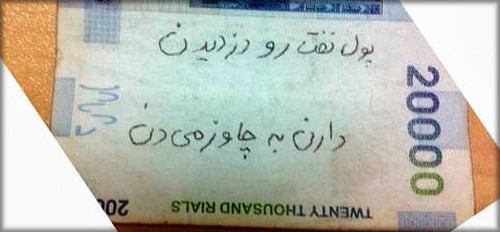 پول نفت رو دزدیدن
دارن به چاوز می دن
20000
TWENTY THOUSAND RIALS
200